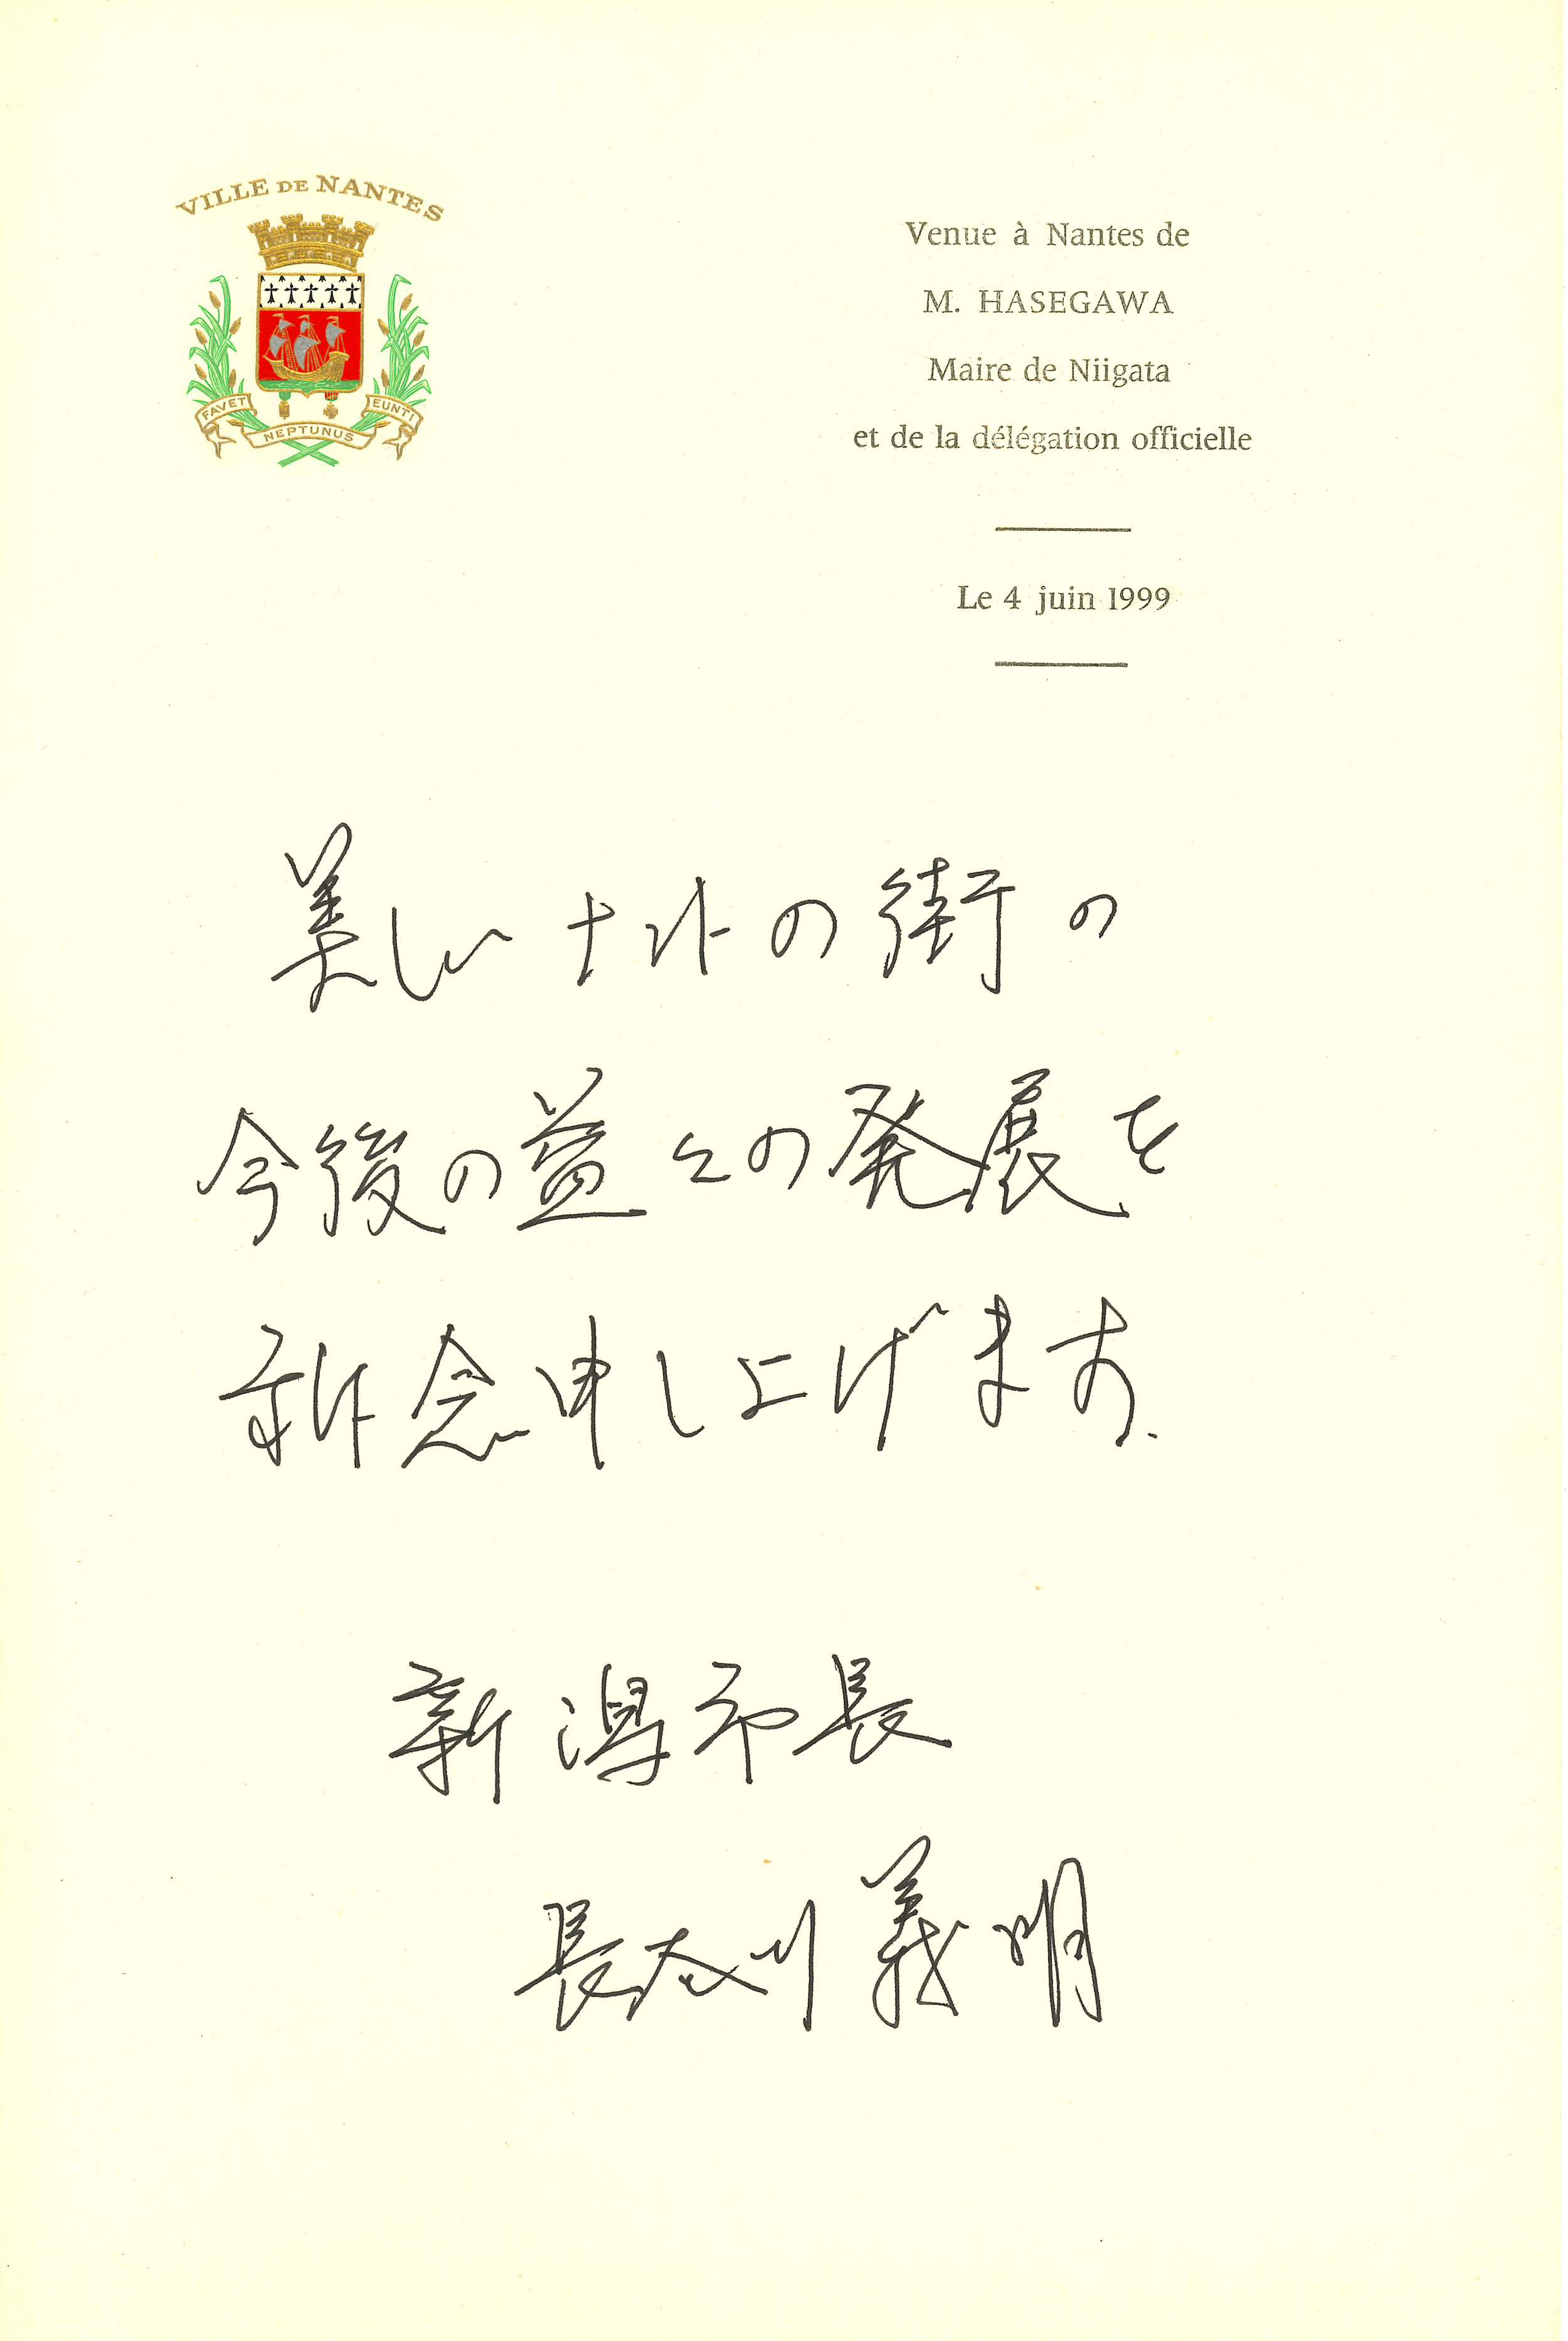 VILLE DE NANTES
FAVET NEPTUNUS EUNTI
Venue à Nantes de
M. HASEGAWA
Maire de Niigata
et de la délégation officielle
Le 4 juin 1999
美しいナントの街の
今後の益々の発展を
祈念申し上げます.
新潟市長
長谷川義明